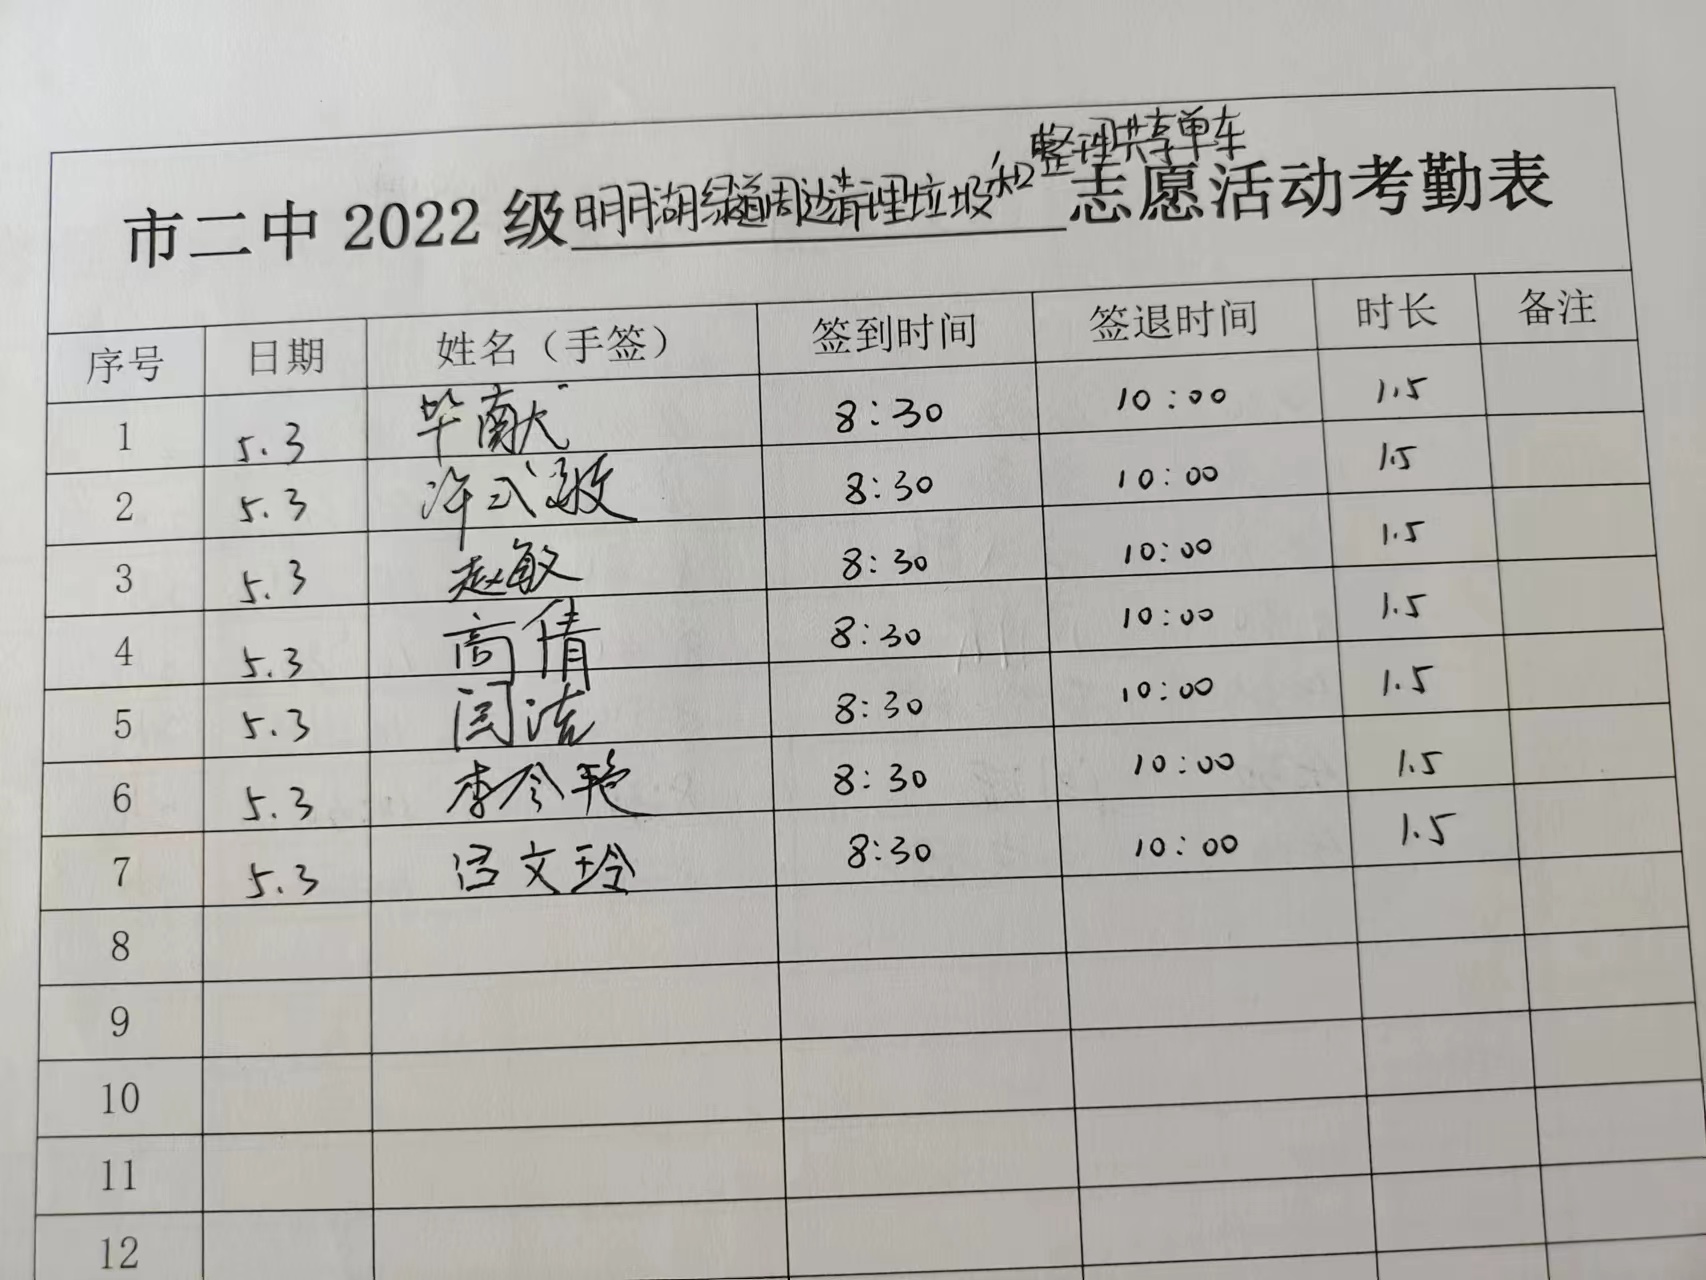 市二中2022级明月湖绿道周边清理垃圾和整理共享单车志愿活动考勤表
序号 日期 姓名（手签） 签到时间 签退时间 时长 备注
1 5.3 毕献 8:30 10:00 1.5
2 5.3 许式敏 8:30 10:00 1.5
3 5.3 赵敏 8:30 10:00 1.5
4 5.3 高倩 8:30 10:00 1.5
5 5.3 闫洁 8:30 10:00 1.5
6 5.3 李令艳 8:30 10:00 1.5
7 5.3 吕文玲 8:30 10:00 1.5
8
9
10
11
12